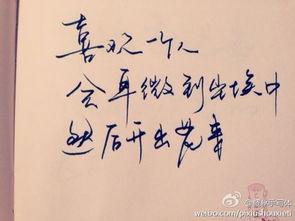 喜欢一个人
会卑微到尘埃中
然后开出花
手写体
weibo.com/pixiushouxieti